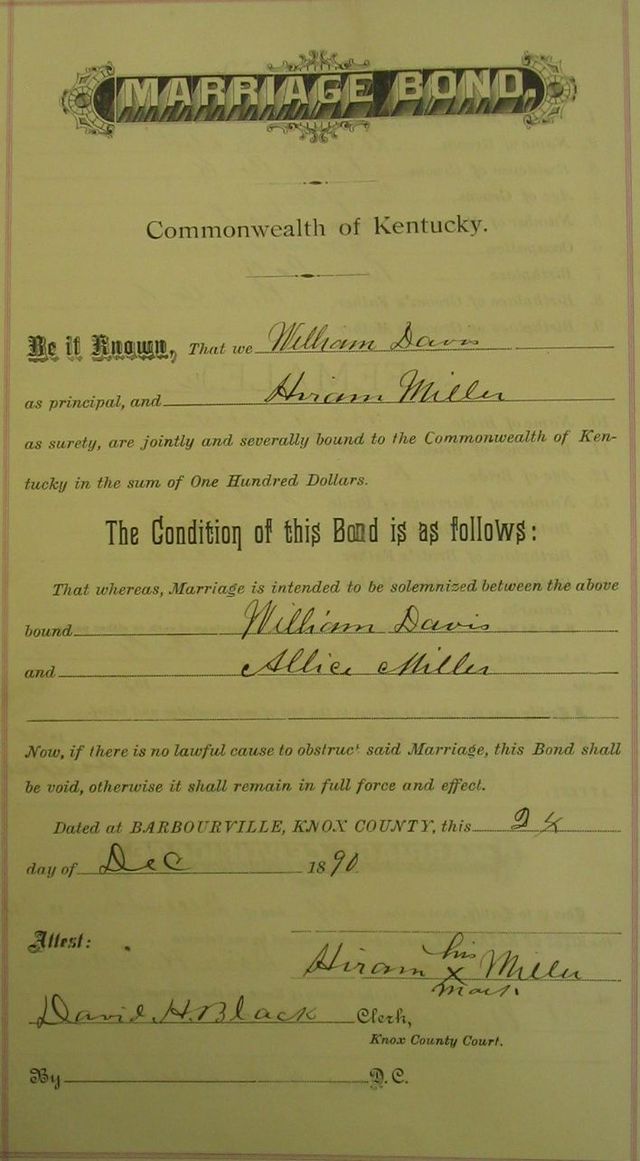 MARRIAGE BOND.
Commonwealth of Kentucky.
Be it Known, That we William Davis
as principal, and Hiram Miller
as surety, are jointly and severally bound to the Commonwealth of Ken-
tucky in the sum of One Hundred Dollars.
The Condition of this Bond is as follows:
That whereas, Marriage is intended to be solemnized between the above
bound William Davis
and Allice Miller
Now, if there is no lawful cause to obstruct said Marriage, this Bond shall
be void, otherwise it shall remain in full force and effect.
Dated at BARBOURVILLE, KNOX COUNTY, this 24
day of Dec 1890
Attest:
his
Hiram X Miller
mark
David H. Black Clerk,
Knox County Court.
By D.C.